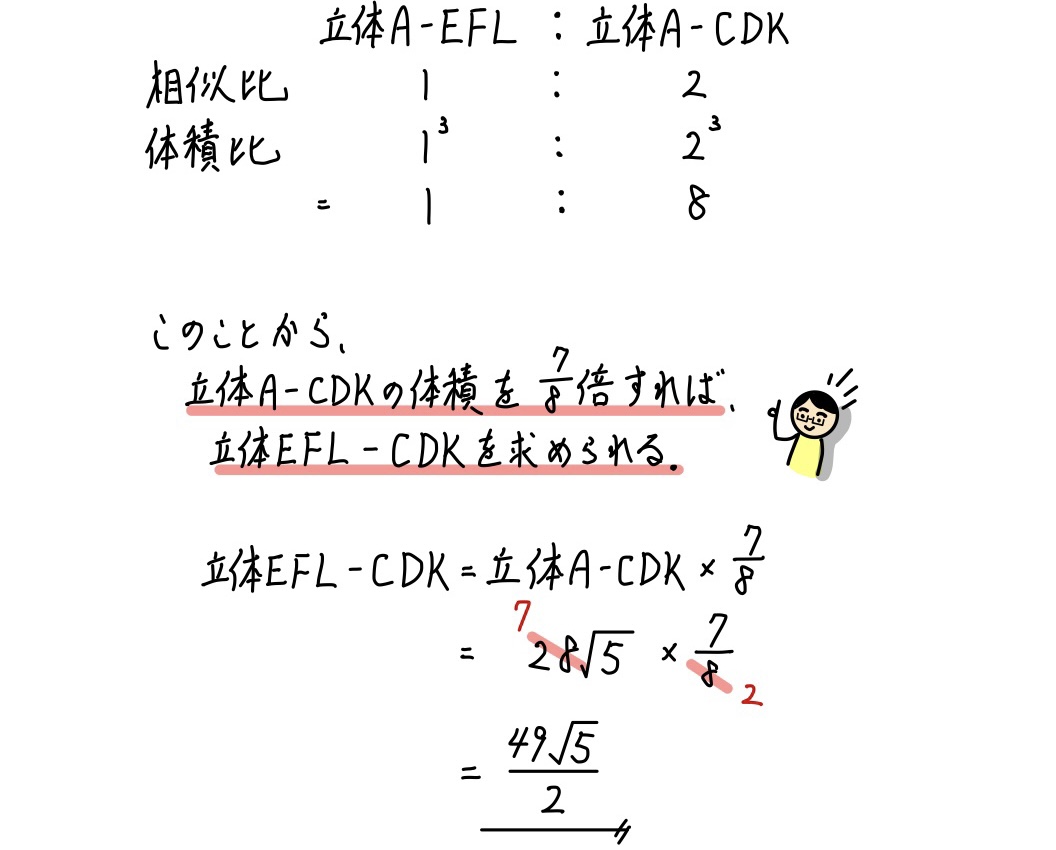 立体A-EFL : 立体A-CDK
相似比 1 : 2
体積比 1³ : 2³
= 1 : 8
このことから、
立体A-CDKの体積を 7/8 倍すれば、
立体EFL-CDKを求められる.
立体EFL-CDK = 立体A-CDK × 7/8
= 28√5 × 7/8
7 2
= 49√5/2